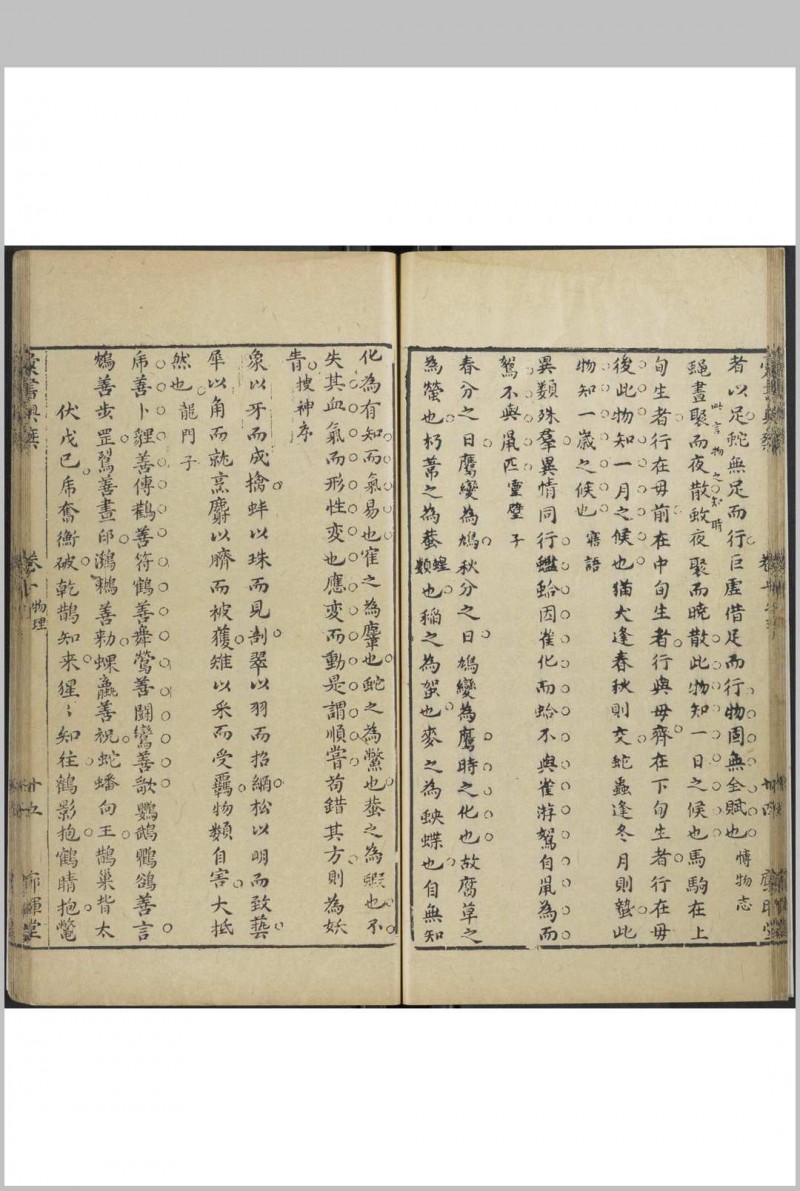 者以足蛇無足而行巨虛借足而行物固無全賦也 博物志
蝇晝聚而夜散蚊夜聚而晓散此物知一日之候也馬駒在上
此言物之知時
旬生者行在毋前在中旬生者行與毋齊在下旬生者行在毋
後此物知一月之候也猫犬逢春秋則交蛇蟲逢冬月則蟄此
物知一歲之候也 寤語
異類殊羣異情同行蠟蛤因雀化而蛤不與雀游鴽自鼠為而
鴽不與鼠匹 靈璧子
春分之日鷹變為鳩秋分之日鳩變為鷹時之化也故腐草之
為螢也朽葦之為蛬蝗類也稲之為䖝也麥之為蛺蝶也自無知
化為有知而氣易也隺之為麞也蛇之為鱉也蛬之為蝦也不
失其血氣而形性变也應变而動是謂順嘗苟錯其方則為妖
青 搜神序
象以牙而成擒蚌以珠而見剖翠以羽而招網松以明而致爇
犀以角而就烹麝以臍而被獲雉以采而受羈物類自害大抵
然也 龍門子
虎善卜貍善傳鸛善符鶴善舞鶯善鬭鸞善歌鸚鵡鸜鵒善言
鴆善步罡鴷善畫印鸂鶒善勑蜾蠃善祝蛇蟠向王鵲巢背太
伏戊巳虎奮衡破乾鵲知来猩〻知往鶴影抱鶴睛抱鼈
物理